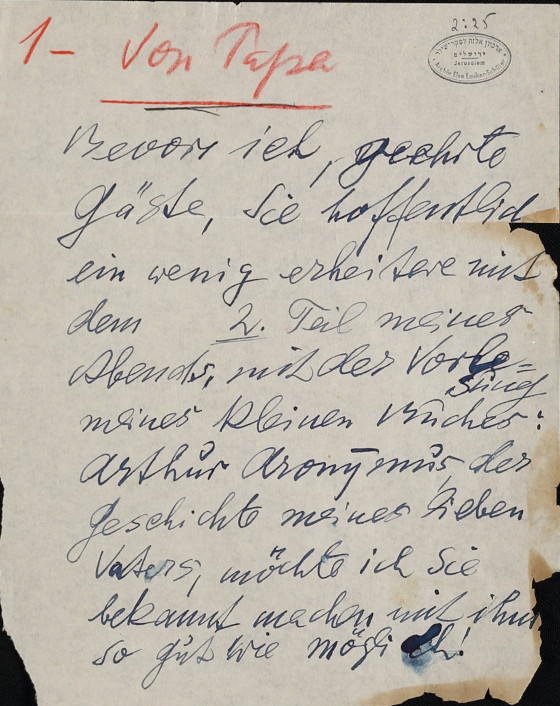 2:25
ארכיון אלזה לסקר-שילר
ירושלים
Jerusalem
Archiv Else Lasker-Schüler
1- Von Papa
Bevor ich, geehrte
Gäste, Sie hoffentlich
ein wenig erheitere mit
dem 2. Teil meines
Abends, mit der Vorle=
sung
meines kleinen Buches:
Arthur Aronymus, der
Geschichte meines lieben
Vaters, möchte ich Sie
bekannt machen mit ihm
so gut wie möglich!